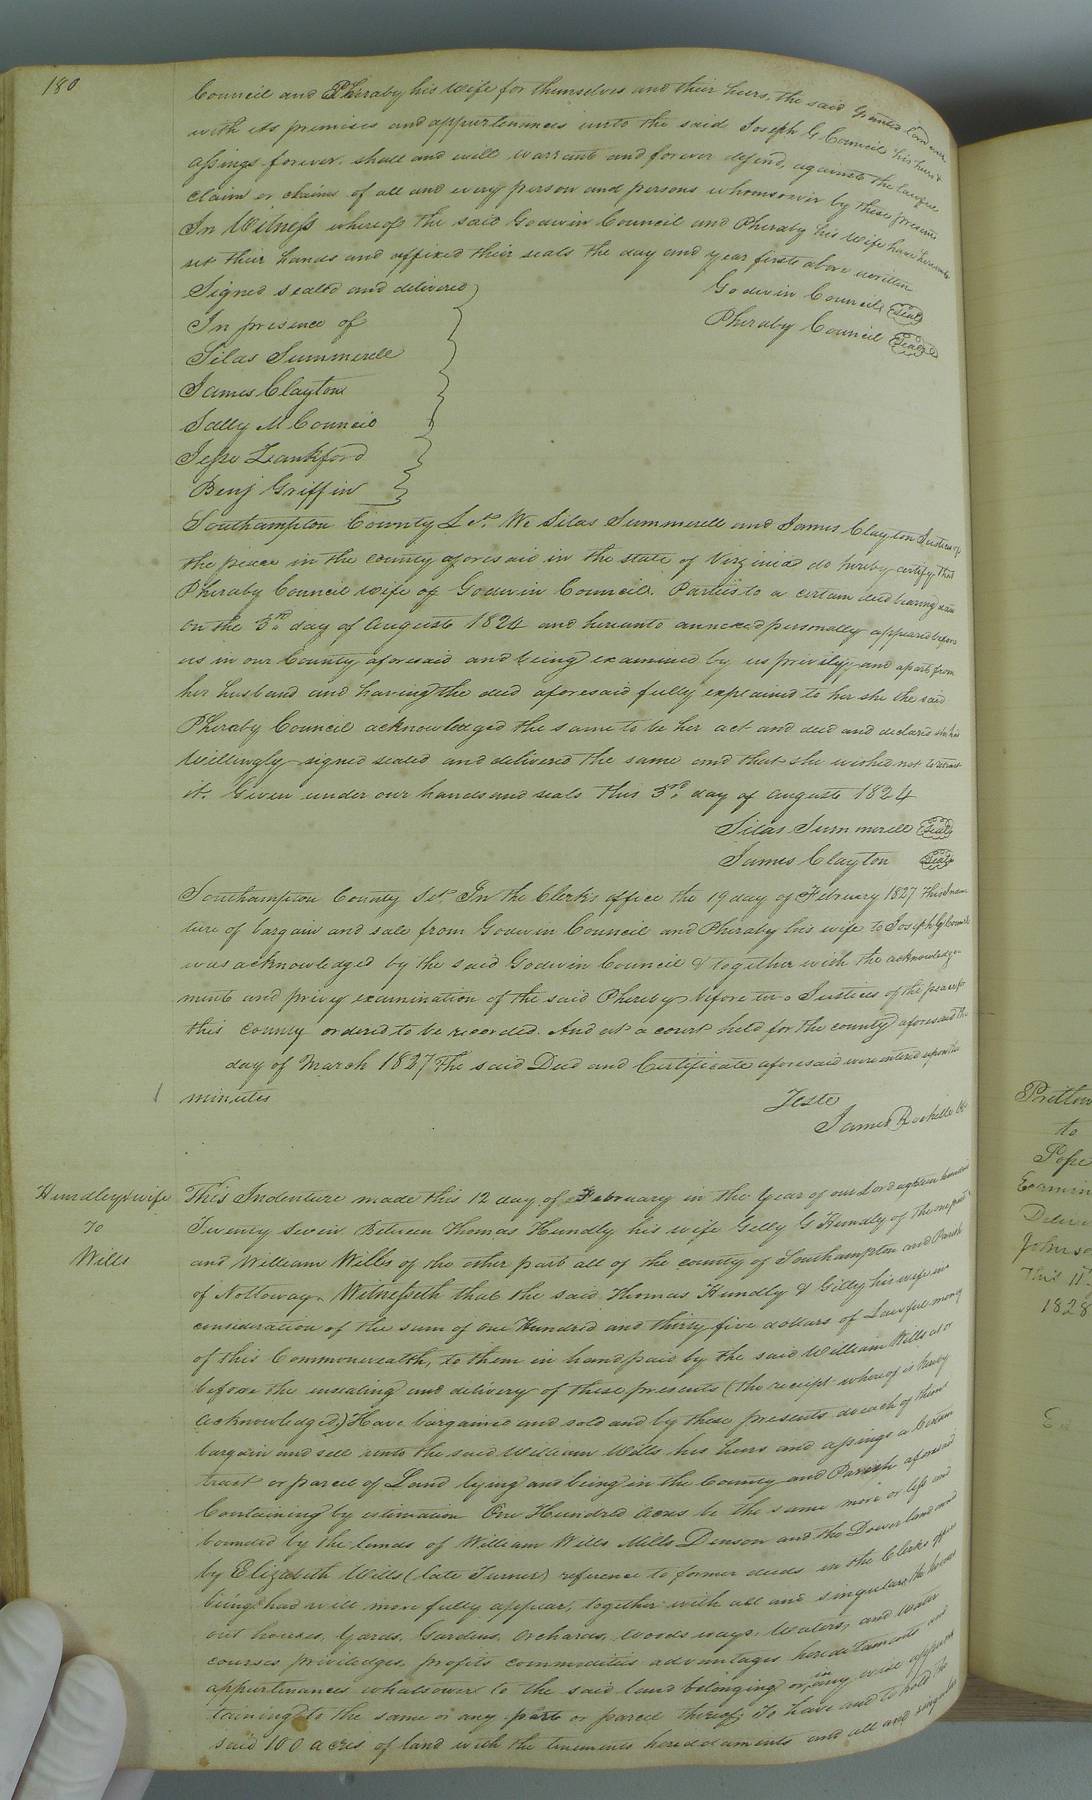 180
Council and Pheraby his wife for themselves and their heirs, the said Granted land and
with its premises and appurtenances unto the said Joseph G Council his heirs &
assings forever. shall and will warrant and forever defend, against the lawful
claim or claims of all and every person and persons whomsoever by these presents
In Witness whereof the said Godwin Council and Pheraby his wife have hereunto
set their hands and affixed their seals the day and year first above written
Signed sealed and delivered
Godwin Council Seal
In presence of
Pheraby Council Seal
Silas Summerell
James Clayton
Sally M Council
Jesse Lankford
Benj Griffin
Southampton County Sct. We Silas Summerell and James Clayton Justices of
the peace in the county aforesaid in the state of Virginia do hereby certify that
Pheraby Council wife of Godwin Council. Parties to a certain deed bearing date
on the 3rd day of August 1824 and hereunto annexed personally appeared before
us in our County aforesaid and being examined by us privily and apart from
her husband and having the deed aforesaid fully explained to her she the said
Pheraby Council acknowledged the same to be her act and deed and declared she had
willingly signed sealed and delivered the same and that she wished not to retract
it. Given under our hands and seals this 3rd day of August 1824
Silas Summerell Seal
James Clayton Seal
Southampton County Sct. In the Clerk's office the 19 day of February 1827 This Inden
ture of bargain and sale from Godwin Council and Pheraby his wife to Joseph G Council
was acknowledged by the said Godwin Council & together with the acknowledge
ment and privy examination of the said Phereby before two Justices of the peace of
this County ordered to be recorded. And at a court held for the county aforesaid the
day of March 1827 The said Deed and Certificate aforesaid were entered upon the
minutes
Teste
James Rochelle Clk
Hundley & wife
To
Wills
This Indenture made this 12 day of February in the Year of our Lord eighteen hundred
Twenty Seven Between Thomas Hundly his wife Gelly G Hundly of the one part
and William Wills of the other part all of the county of Southampton and Parish
of Nottoway. Witnesseth that the said Thomas Hundly & Gilly his wife in
consideration of the sum of One Hundred and thirty five dollars of Lawful money
of this Commonwealth, to them in hand paid by the said William Wills at or
before the ensealing and delivery of these presents (the receipt whereof is hereby
acknowledged) Have bargained and sold and by these presents do each of them
bargain and sell unto the said William Wills his heirs and assings a Certain
tract or parcel of Land lying and being in the County and Parish aforesaid
Containing by estimation One Hundred acres be the same more or less and
bounded by the lands of William Wills Mills Denson and the Dower land
by Elizabeth Wills (late Turner) reference to former deeds in the Clerks office
being had will more fully appear, together with all and singular the houses
out houses, Yards, Gardens, Orchards, woods ways, Waters, and water
courses priviledges, profits commodities advantages hereditaments and
appurtinances whatsoever to the said land belonging or in any wise apper
taining to the same or any part or parcel thereof; To have and to hold the
said 100 acres of land with the tenements hereditaments and all and singular
to
Pope
Examin
John
This 11
1828